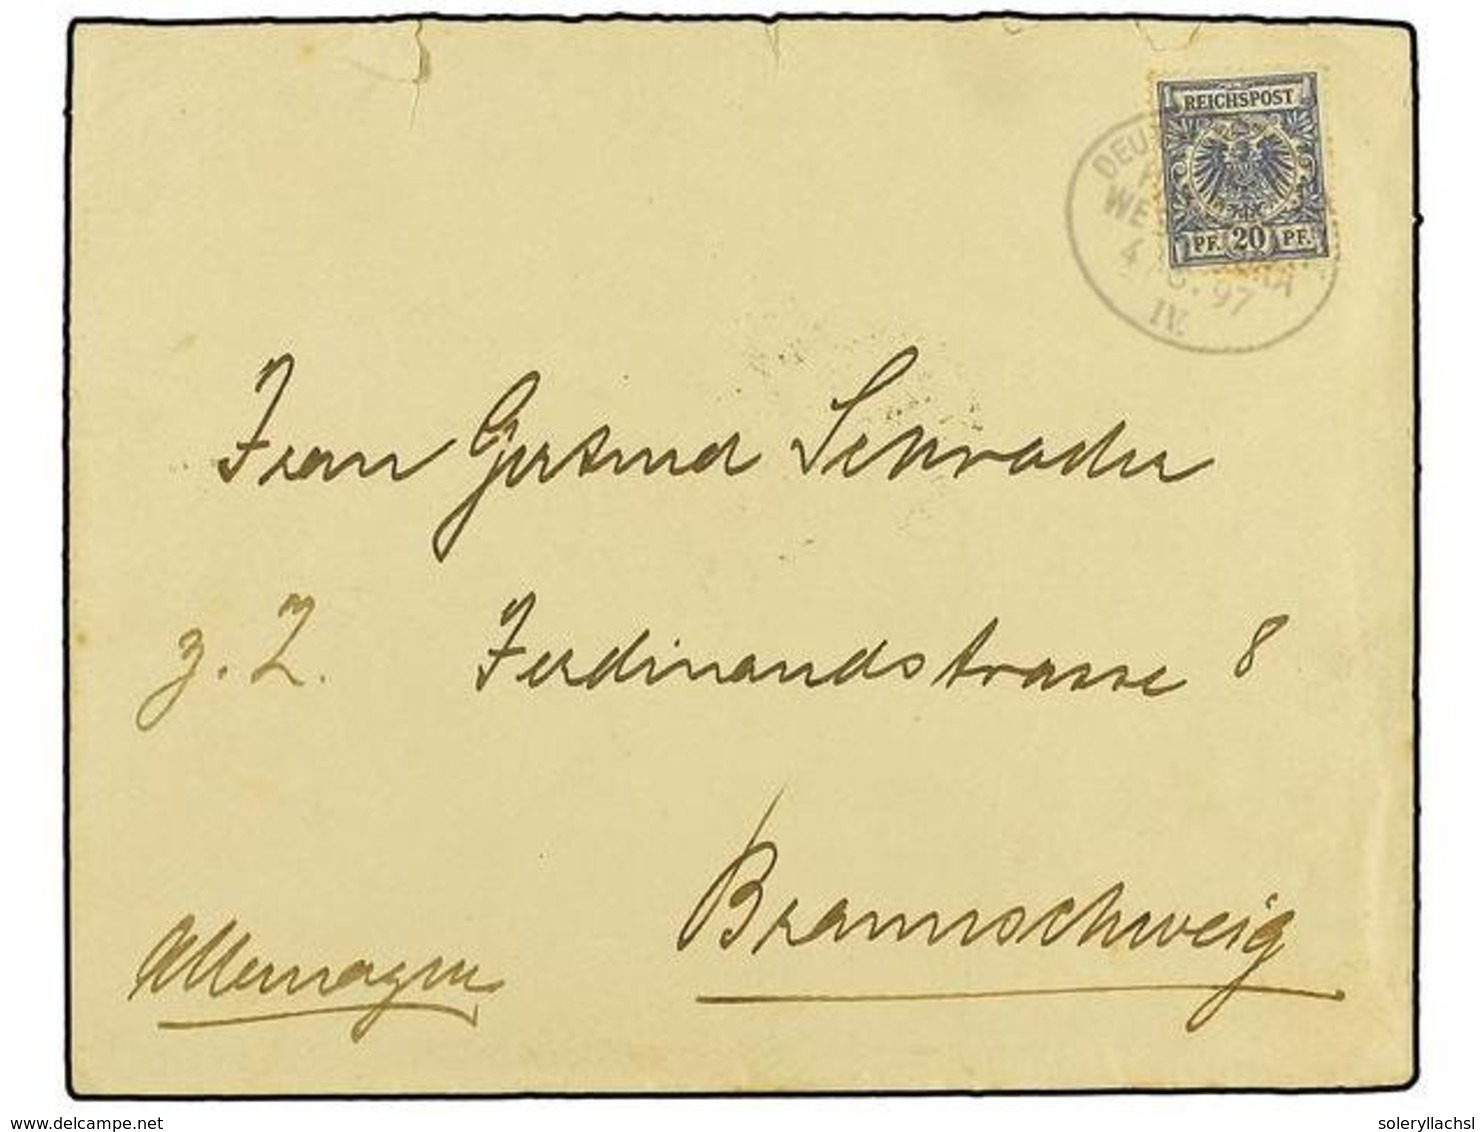 REICHSPOST
PF. 20 PF.
DEU
WE
4
97
IV.
Frau Gertrud Schrader
z. Z. Ferdinandstrasse 8
Braunschweig
Allemagne
delcampe.net
soleryllachsl